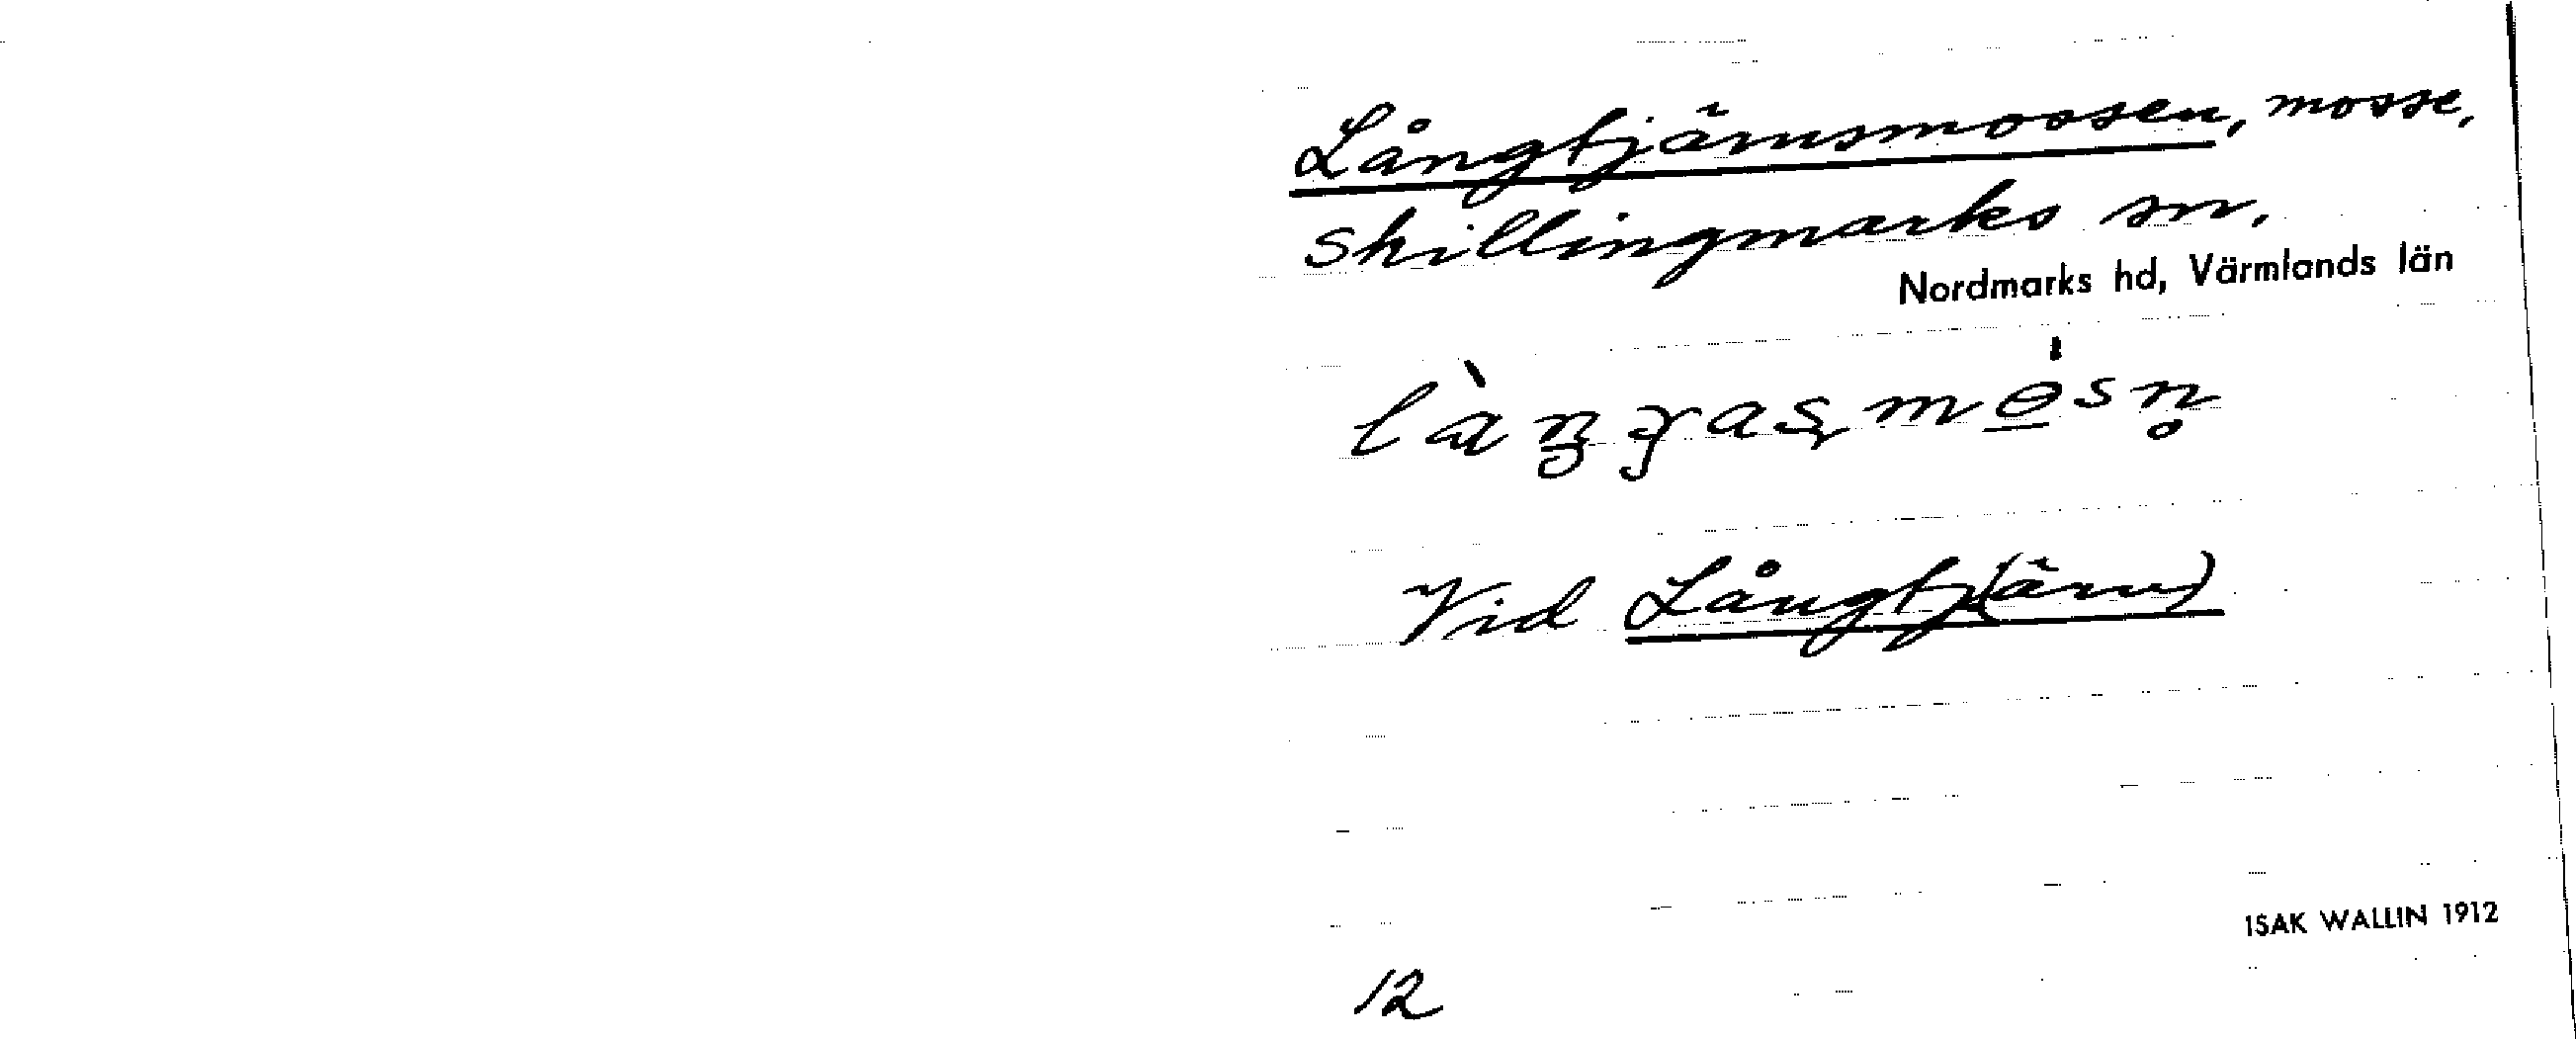 Långtjärnsmossen, mosse,
Skillingmarks sn.
Nordmarks hd, Värmlands län
Vid Långtj(ärn)
ISAK WALLIN 1912
12